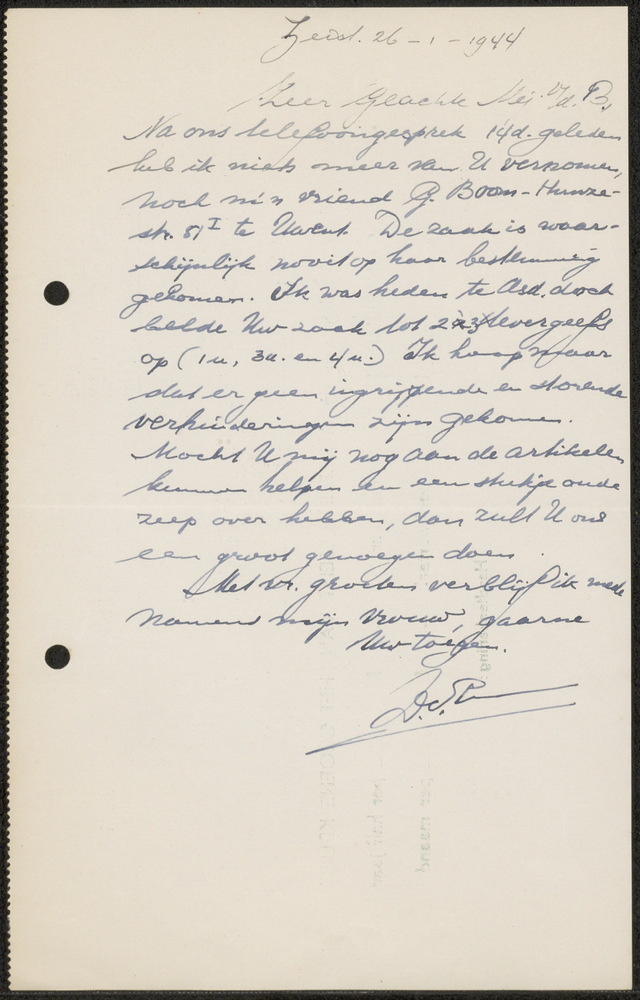 Zeist. 26-1-1944
Zeer Geachte Mej. v/d. B.,
Na ons telefoongesprek 14d. geleden
heb ik niets meer van U vernomen,
noch m'n vriend G. Boom-Hunze-
str. 81 I te Utrecht. De zaak is waar-
schijnlijk nooit op haar bestemming
gekomen. Ik was heden te Asd. doch
belde Uw zaak tot 3x tevergeefs
op (1u, 3u. en 4u.) Ik hoop maar
dat er geen ingrijpende en storende
verhinderingen zijn gekomen.
Mocht U mij nog aan de artikelen
kunnen helpen en een stukje oude
zeep over hebben, dan zult U ons
een groot genoegen doen.
Met vr. groeten verblijf ik mede
namens mijn vrouw, gaarne
Uw toegen.